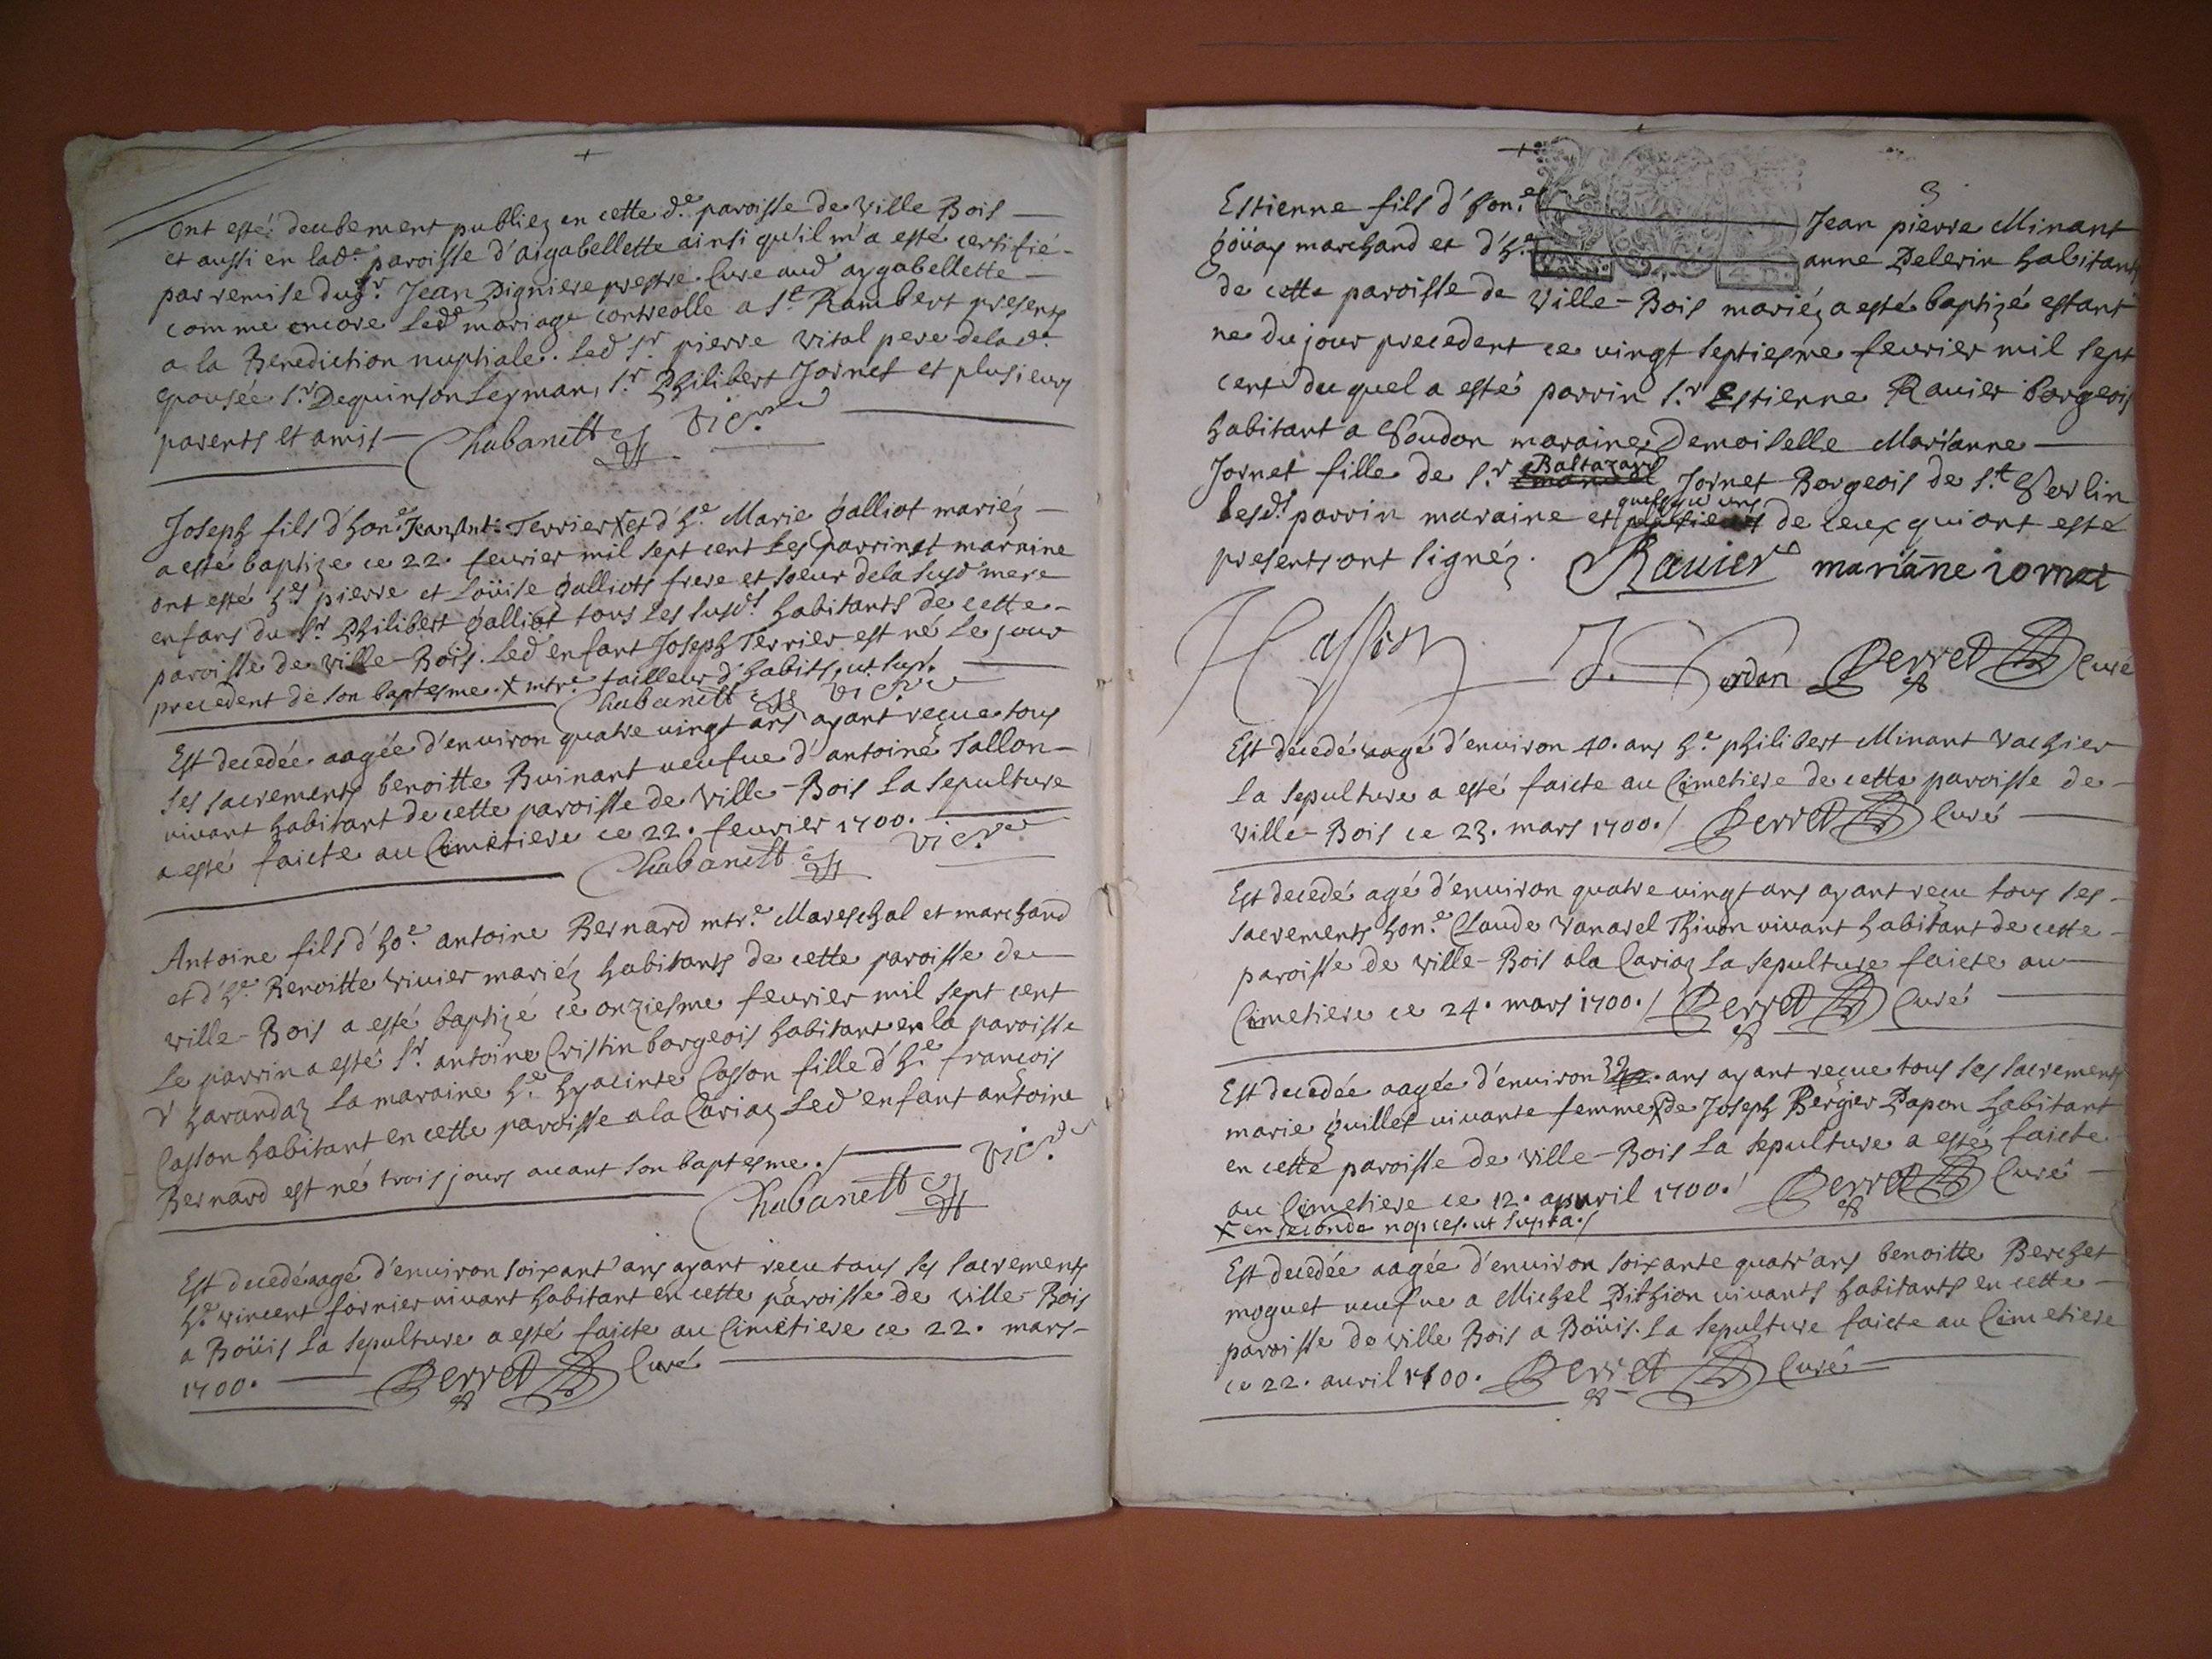 ont esté deubement publiez en cette d.e paroisse de Ville Bois
et aussi en lad.e paroisse d'aigabellette ainsi qu'il m'a esté certifié
par remise du Sr. Jean Digniere prestre Curé aud aygabellette
comme encore led mariage controlle a St. Rambert presents
a la Benediction nuptiale. Led Sr. pierre Vital pere de la de.
epousée Sr. Dequinson Leyman, Sr. Philibert Jornet et plusieurs
parents et amis Chabanett vic.re
Joseph fils d'hon.e Jean Ant. Terrier X et d'h.e Marie Galliot mariéz
a esté baptize ce 22. feurier mil sept cent Les parrin et marrine
ont esté h.es pierre et Loüise Galliots frere et soeur de la susd mere
enfans du Sr. Philibert Galliot tous les susd.s habitants de cette
paroisse de Ville-Bois. Led enfant Joseph Terrier est né Le jour
precedent de son baptesme. X mtr.e tailleur d'habits, ut sup.
Chabanett vic.re
Est decedée aagée d'enuiron quatre uingt ans ayant reçue tous
ses sacrements benoitte Buinant ueufue d'antoine Tallon
uiuant habitant de cette paroisse de Ville-Bois La sepulture
a esté faicte au Cimetiere ce 22. feurier 1700.
Chabanett vic.re
Antoine fils d'ho.e antoine Bernard mtr.e Mareschal et marchand
et d'h.e Benoitte Viuier mariéz habitants de cette paroisse de
Ville-Bois a esté baptizé ce onziesme feurier mil sept cent
Le parrin a esté Sr. antoine Cristin borgeois habitant en la paroisse
d'harandaz La maraine h.e hyacinte Casson fille d'h.e francois
Casson habitant en cette paroisse a la Cariaz Led enfant antoine
Bernard est né trois jours auant son baptesme./ vic.re
Chabanett
Est decedé aagé d'enuiron soixant' ans ayant reçu tous ses sacrements
h.e Vincent fornier uiuant habitant en cette paroisse de Ville-Bois
a Boüis La sepulture a esté faicte au Cimetiere ce 22. mars
1700. Perret Curé
3
Estienne fils d'hon.e Jean pierre Minant
goüax marchand et d'h.e anne Pelerin habitants
de cette paroisse de Ville-Bois mariéz a esté baptizé estant
ne du jour precedent ce uingt septiesme feurier mil sept
cent duquel a esté parrin Sr. Estienne Rauier borgeois
habitant a Soudon maraine Demoiselle Marianne
Jornet fille de Sr. Baltazard Jornet Borgeois de St. Sorlin
lesd.s parrin maraine et quelqu'uns de ceux qui ont esté
presents ont signéz. Rauier mariãne iornet
Cassin J. Jordan Perret Curé
Est decedé aagé d'enuiron 40. ans h.e philibert Minant Vachier
la sepulture a esté faicte au Cimetiere de cette paroisse de
Ville-Bois ce 23. mars 1700./ Perret Curé
Est decedé agé d'enuiron quatre uingt ans ayant reçu tous ses
sacrements hon.e Claude Vanarel Thiuon uiuant habitant de cette
paroisse de Ville-Bois a la Cariaz La sepulture faicte au
Cimetiere ce 24. mars 1700./ Perret Curé
Est decedée aagée d'enuiron ans ayant reçue tous ses sacrements
marie Guillet uiuante femme X de Joseph Bergier Papon habitant
en cette paroisse de Ville-Bois La sepulture a esté faicte
au Cimetiere ce 12. apuril 1700./ Perret Curé
X en seconde nopces. ut supra./
Est decedée aagée d'enuiron soixante quatr'ans benoitte Berchet
moguet ueufue a Michel Dithion uiuants habitants en cette
paroisse de Ville Bois a Boüis. La sepulture faicte au Cimetiere
ce 22. auril 1700. Perret Curé